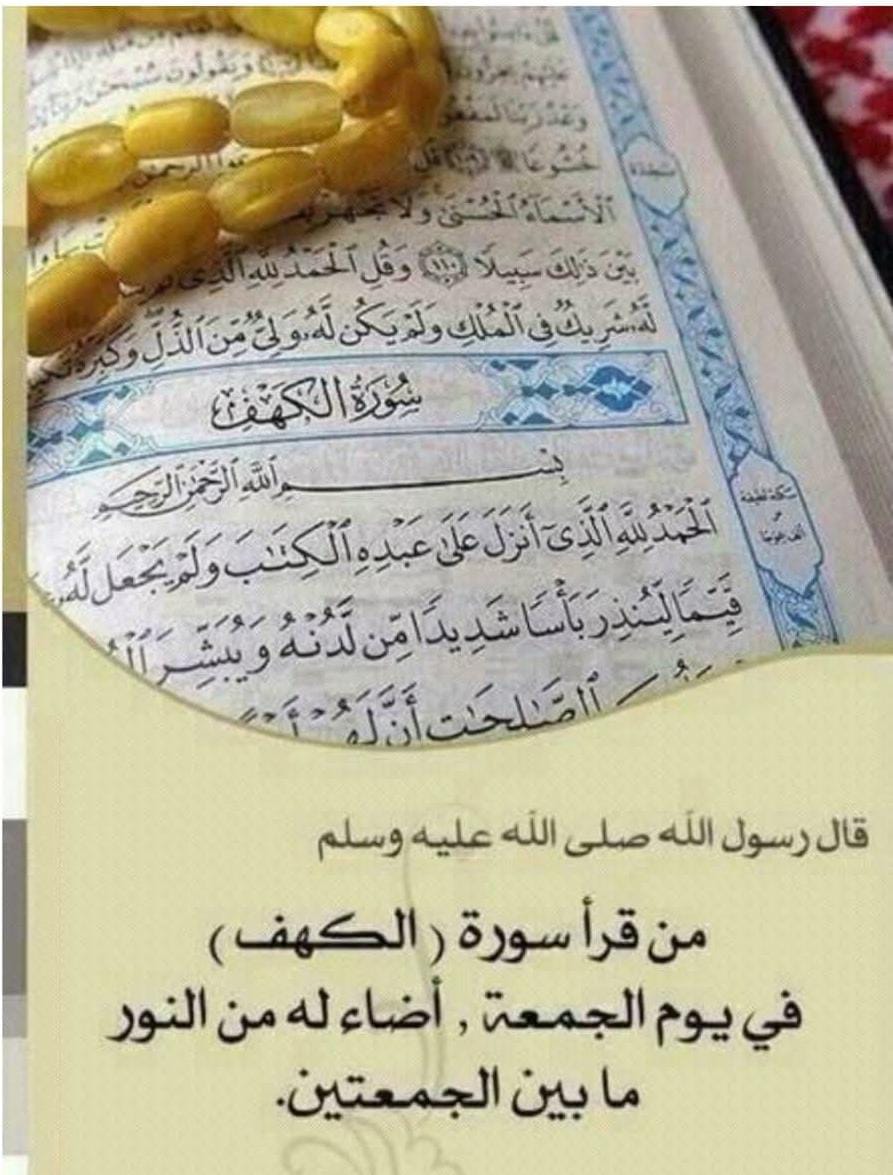 خُشُوعًا ۩ ﴿١٠٩﴾ قُلِ
ٱلۡأَسۡمَآءُ ٱلۡحُسۡنَىٰ وَلَا تَجۡهَرۡ
بَيۡنَ ذَٰلِكَ سَبِيلًا ﴿١١٠﴾ وَقُلِ ٱلۡحَمۡدُ لِلَّهِ ٱلَّذِى
لَّهُۥ شَرِيكٌ فِى ٱلۡمُلۡكِ وَلَمۡ يَكُن لَّهُۥ وَلِىٌّ مِّنَ ٱلذُّلِّ وَكَبِّرۡهُ
سُورَةُ الكَهْفِ
بِسۡمِ ٱللَّهِ ٱلرَّحۡمَٰنِ ٱلرَّحِيمِ
ٱلۡحَمۡدُ لِلَّهِ ٱلَّذِىٓ أَنزَلَ عَلَىٰ عَبۡدِهِ ٱلۡكِتَٰبَ وَلَمۡ يَجۡعَل لَّهُۥ
قَيِّمًا لِّيُنذِرَ بَأۡسًا شَدِيدًا مِّن لَّدُنۡهُ وَيُبَشِّرَ
ٱلصَّٰلِحَٰتِ أَنَّ لَهُمۡ
قال رسول الله صلى الله عليه وسلم
من قرأ سورة ( الكهف )
في يوم الجمعة , أضاء له من النور
ما بين الجمعتين.